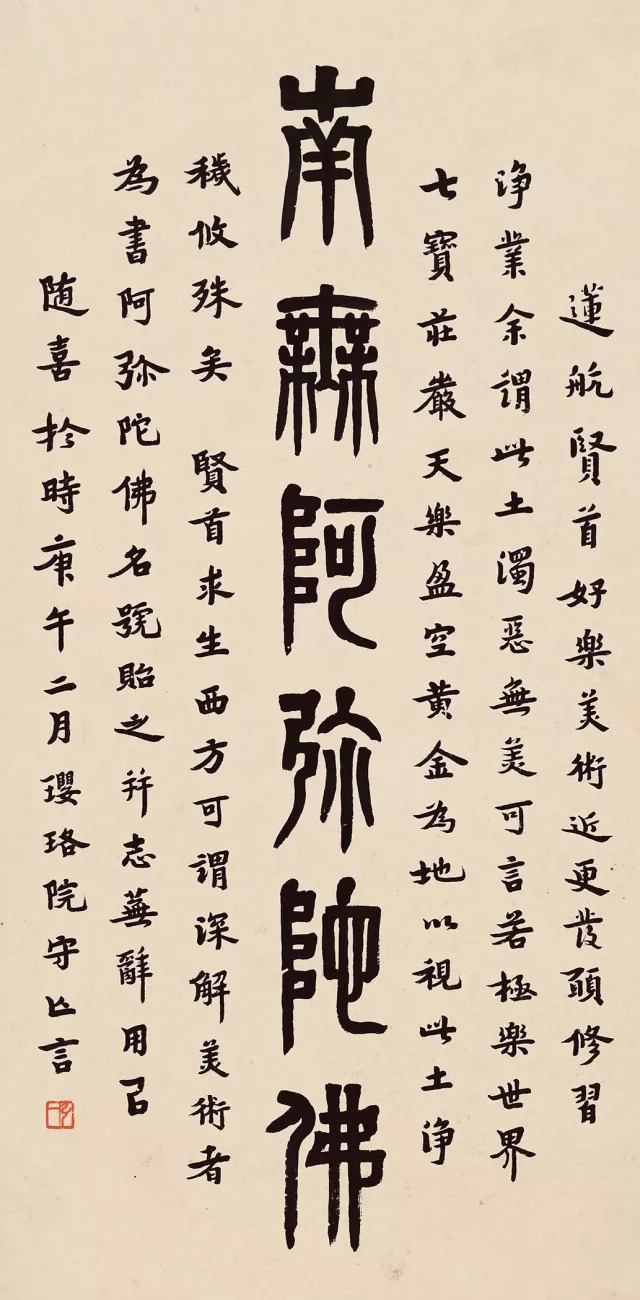 蓮航賢首好樂美術近更發願修習
淨業余謂此土濁惡無美可言若極樂世界
七寶莊嚴天樂盈空黃金為地以視此土淨
南無阿弥陀佛
穢攸殊矣 賢首求生西方可謂深解美術者
為書阿弥陀佛名號貽之并志蕪辭用召
随喜於時庚午二月瓔珞院守亾言